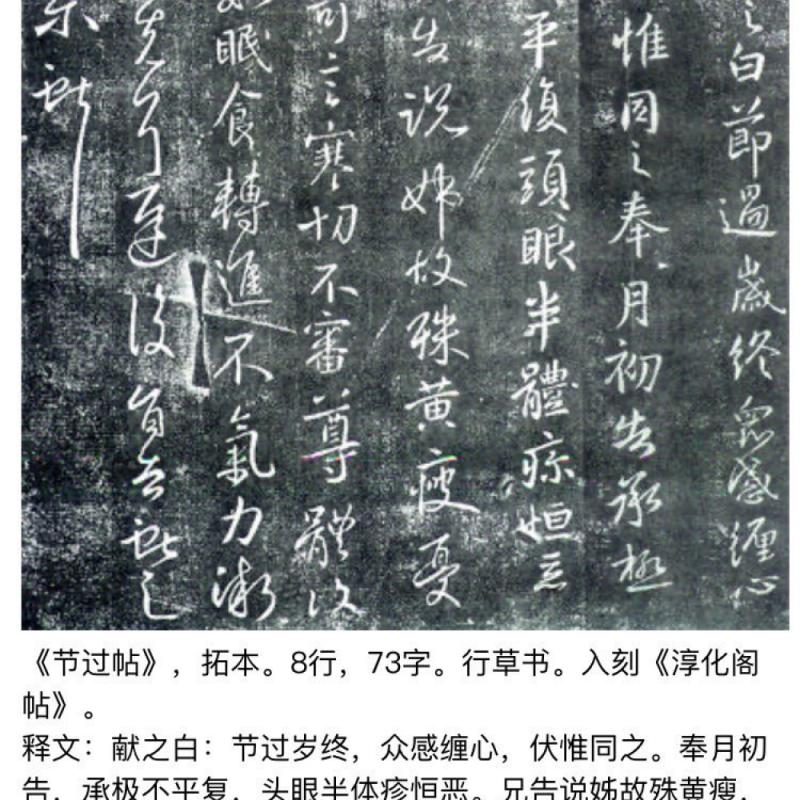 之白節過歲終眾感纏心
惟同之奉月初告承極
平復頭眼半體疹恒惡
告說姊故殊黃瘦憂
可言寒切不審尊體復
眠食轉進不氣力漸
復
獻之
《节过帖》，拓本。8行，73字。行草书。入刻《淳化阁
帖》。
释文：献之白：节过岁终，众感缠心，伏惟同之。奉月初
告，承极不平复，头眼半体疹恒恶。兄告说姊故殊黄瘦，